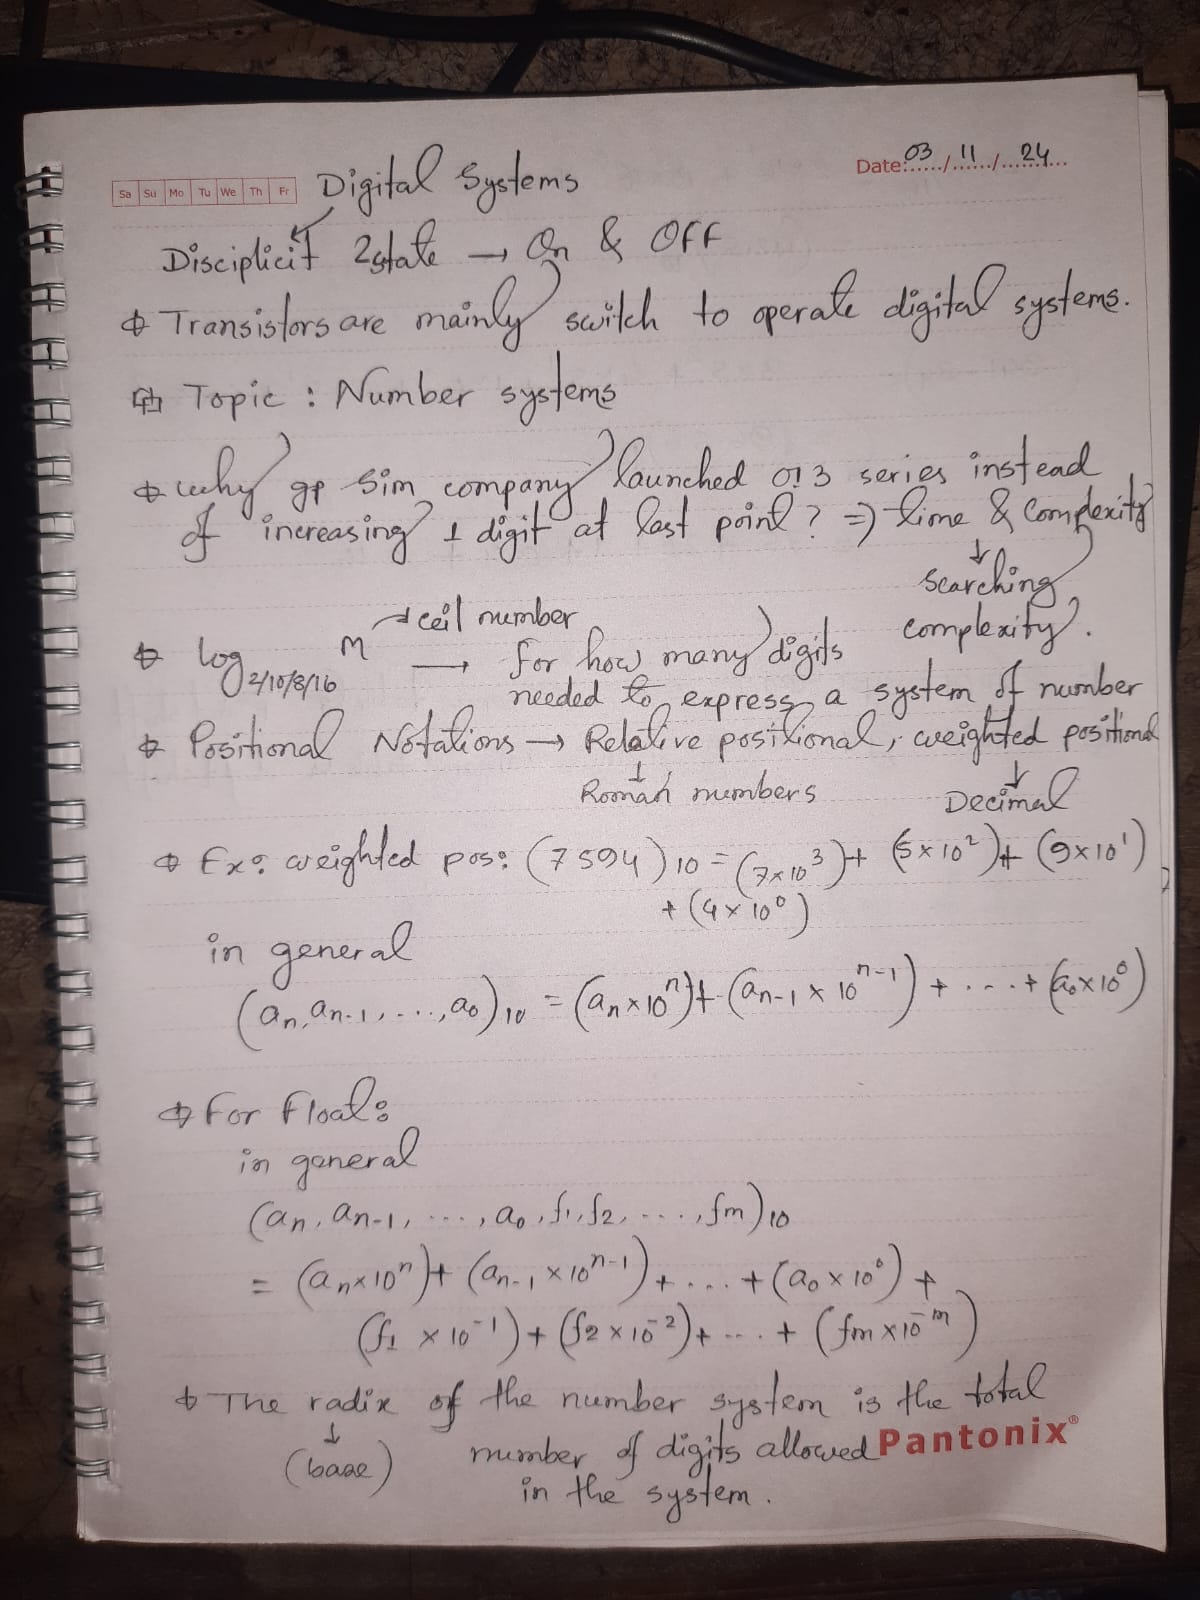 Date: 03/11/24
Sa Su Mo Tu We Th Fr
Digital Systems
Disciplicit 2state → On & Off
Transistors are mainly switch to operate digital systems.
Topic : Number systems
why gp Sim company launched 013 series instead
of increasing 1 digit at last point ? ⇒ time & Complexity
↓
Searching
complexity.
→ ceil number
log 2/10/8/16 M → for how many digits
needed to express a system of number
Positional Notations → Relative positional, weighted positional
↓ ↓
Roman numbers Decimal
Ex: weighted pos: (7594)₁₀ = (7×10³) + (5×10²) + (9×10¹)
+ (4×10⁰)
in general
(aₙ, aₙ₋₁, ..., a₀)₁₀ = (aₙ×10ⁿ) + (aₙ₋₁×10ⁿ⁻¹) + ... + (a₀×10⁰)
For Float:
in general
(aₙ, aₙ₋₁, ..., a₀, f₁, f₂, ..., fm)₁₀
= (aₙ×10ⁿ) + (aₙ₋₁×10ⁿ⁻¹) + ... + (a₀×10⁰) +
(f₁×10⁻¹) + (f₂×10⁻²) + ... + (fm×10⁻ᵐ)
The radix of the number system is the total
↓
(base) number of digits allowed
Pantonix®
in the system.